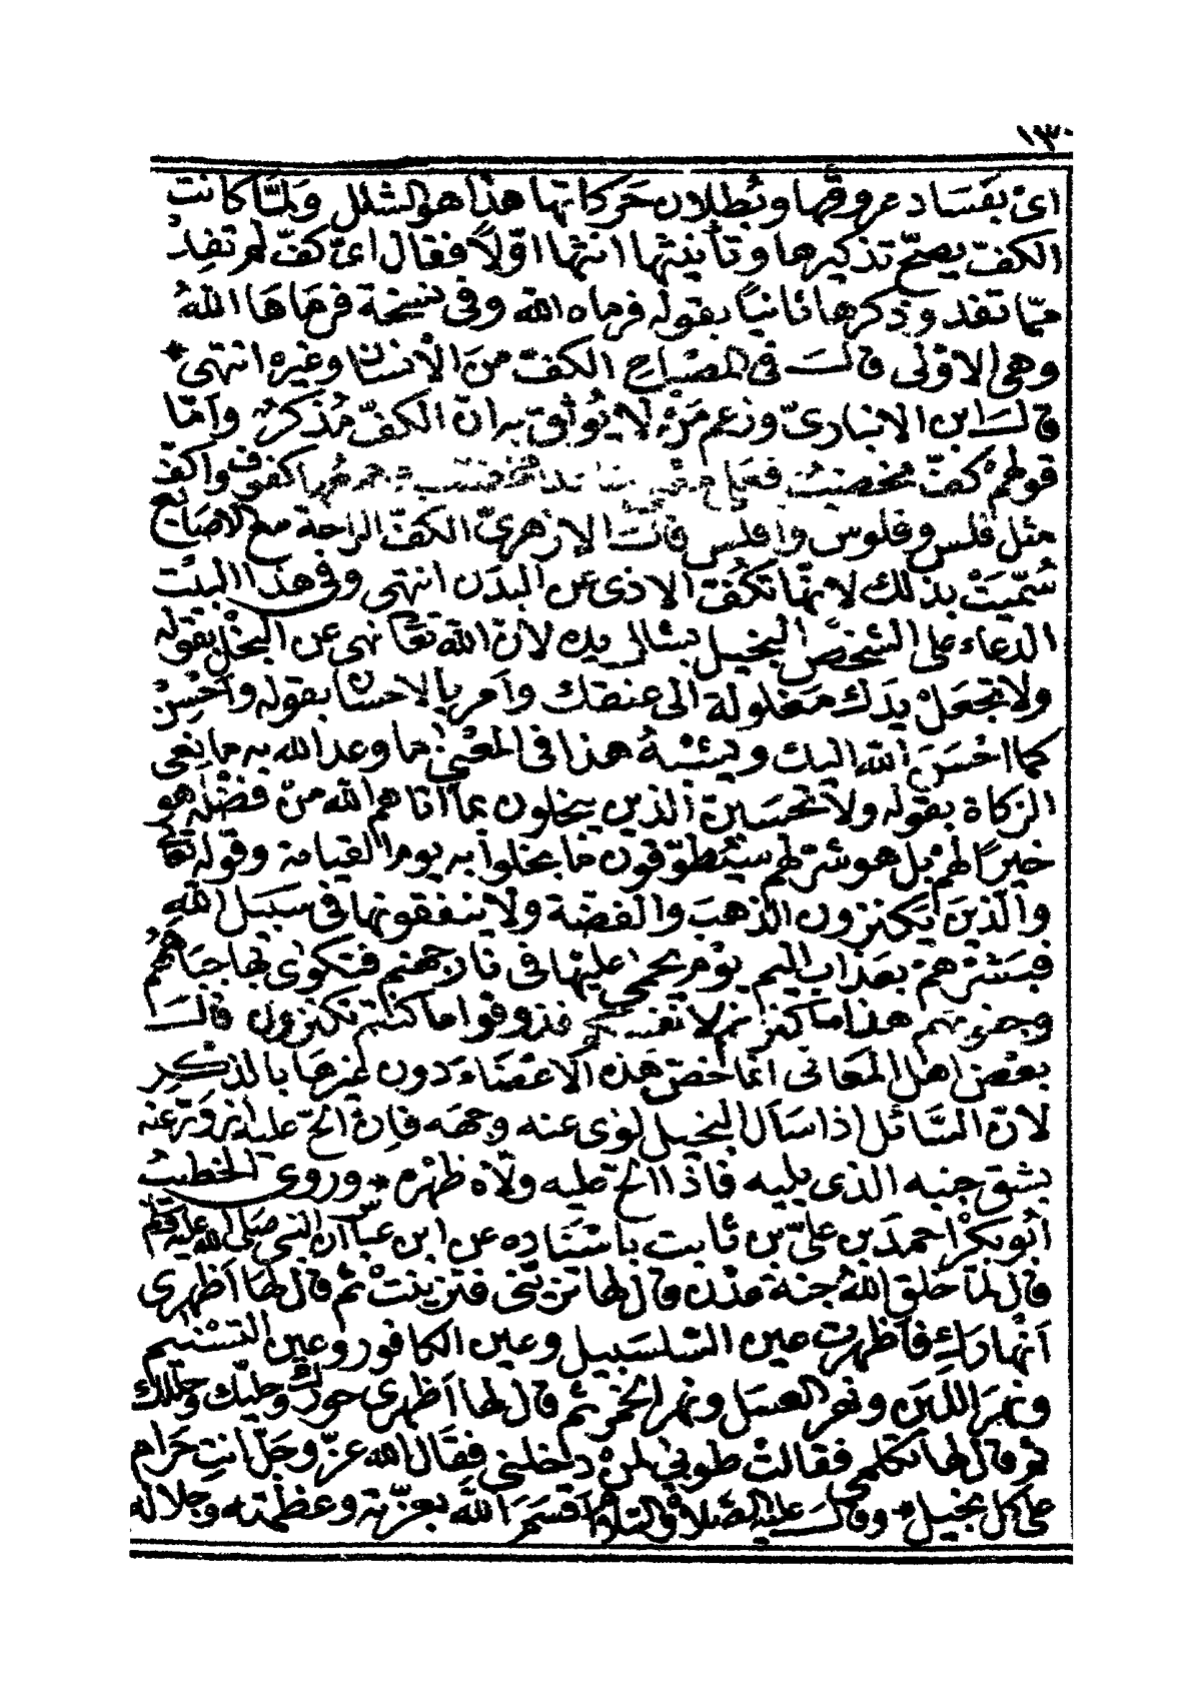 ١٣٠
اىْ بفَسَاد عروقها وبُطلان حَركاتها هذا هو الشلل ولمَّا كانت
الكفّ يصحّ تذكيرها وتأنيثها انثها اوّلًا فقال اىّ كفّ لم تفِدْ
ممّا تفد وذكرها ثانيًا بقوله فرماه الله وفى نسخة فرمَاهَا اللهُ
وهى الاوْلى قالـــ فى المصبَاح الكفّ منَ الْانسَان وغيره انتهى *
قالــ ابن الانبارىّ وزعم مَنْ لا يُوثق به ان الكفّ مُذكرٌ وامّا
قولهمْ كفّ مخضبٌ فعلى معنى كفوف واكفّ
مثل فلس وفلوس وافلس قالــ الازهرىّ الكفّ الراحة مع الاصَابع
سُمّيَتْ بذلك لانهّا تكُفّ الاذى عن البدَن انتهى وفى هذا البيْت
الدعاء على الشخص البخيل بشلل يده لان الله تعالى نهى عن البخْل بقوله
ولا تجعَلْ يدَك مَغلولة الى عنقك وامر بالاحسَان بقوله واَحْسِنْ
كما احْسَنَ الله اليك ويشبهُ هذا فى المعْنى ما وعد الله به مانعى
الزكاة بقوله ولا تحسَبن الذين يبخلون بما آتاهم الله منْ فضله هو
خيرًا لهمْ بلْ هو شرّ لهم سيُطوّقون ما بخلوا به يوم القيامة وقوله تعالى
والّذينَ يَكنزون الذهبَ والفضة ولا ينفقونها فى سبيَل الله
فبَشّرْهمْ بعَذاب اليم يوْم يحمى عليْها فى نار جهنم فتكوى بها جبَاههُم
وجنوبهم هذا ما كنزتم لا نفسكم فذوقوا ما كنتم تكنزون قالــ
بعْض اهل المعَانى انما خصّ هَذه الْاعْضَاء دون غيرهَا بالذكِر
لان السَّائل اذا سَأل البخيل لوى عنه وجهَه فاِن الَحّ عليه ازورّ عنه
بشق جنبه الذى يليه فاذا الحّ عليه ولّاه ظهْره * وروى الخطيبُ
ابُو بكرْ احمدَ بن علىّ بن ثابت باسْنَاده عن ابن عباس ان النبى صَلى الله عليه وسَلم
قال لمّا خلق اللهُ جنة عدْن قال لها تزيّنى فتزينتْ ثم قال لهَا اَظهرى
اَنْهارَكِ فاَظهرت عين السّلسَبيل وعين الكافور وعين التسْنيم
ونهرَ اللبَن ونهر العسَل ونهر الخمر ثم قال لها اَظهرى حورك وحليّك وحللك
ثم قال لها تكلمى فقالتْ طوبى لمنْ دخلنى فقَال الله عزّ وجَلّ انتِ حَرام
على كل بخيل * وقالـــ عليْه الصَّلاة والسّلام اَقسَمَ الله بعزّته وعظمته وجلاله